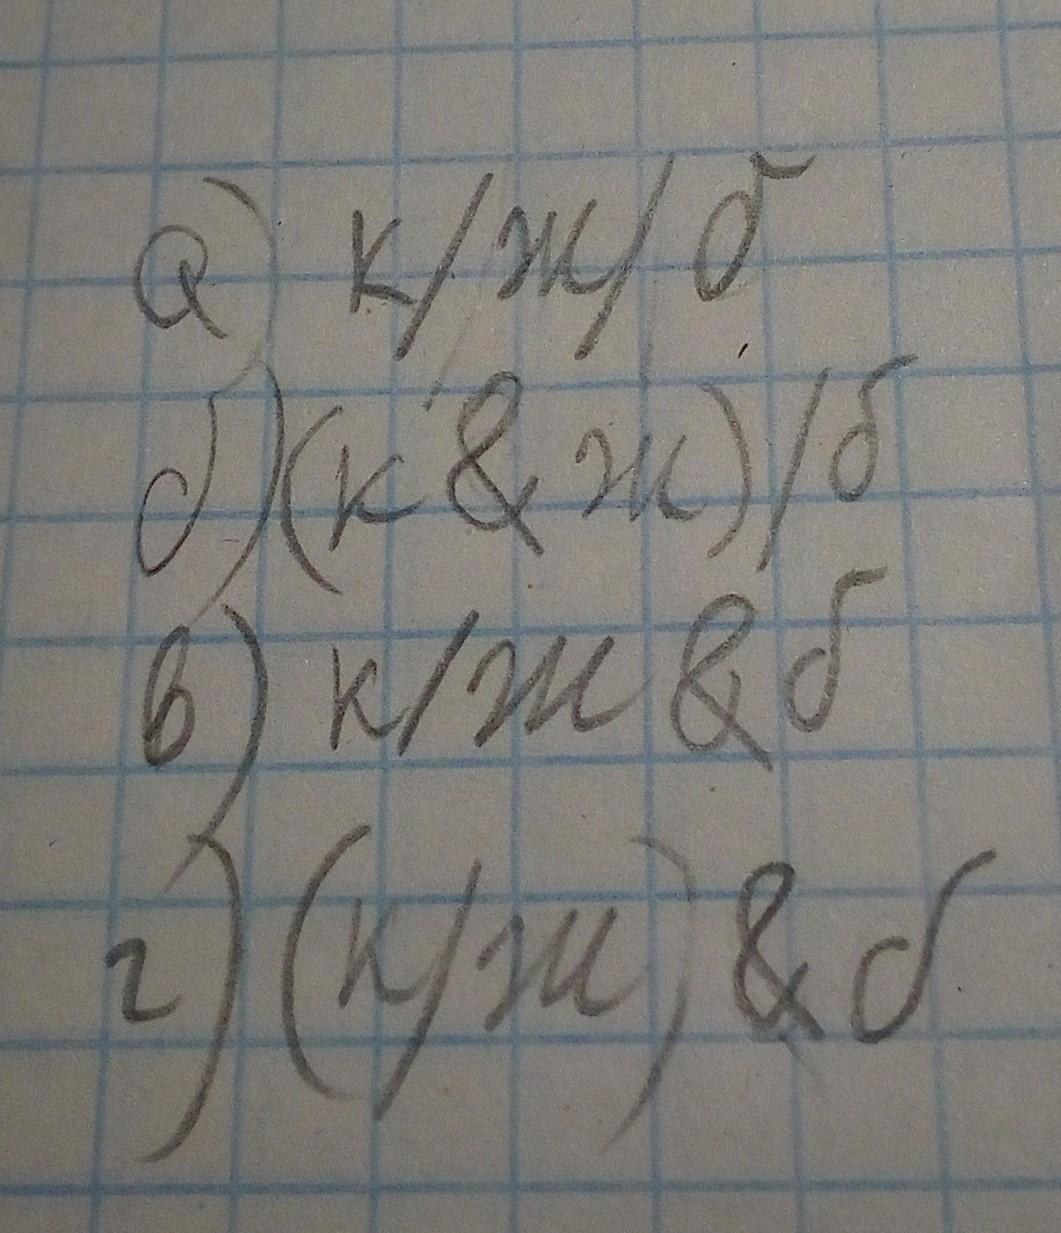 а) к/ж/б
б) (к & ж)/б
в) к/ж & б
г) (к/ж) & б